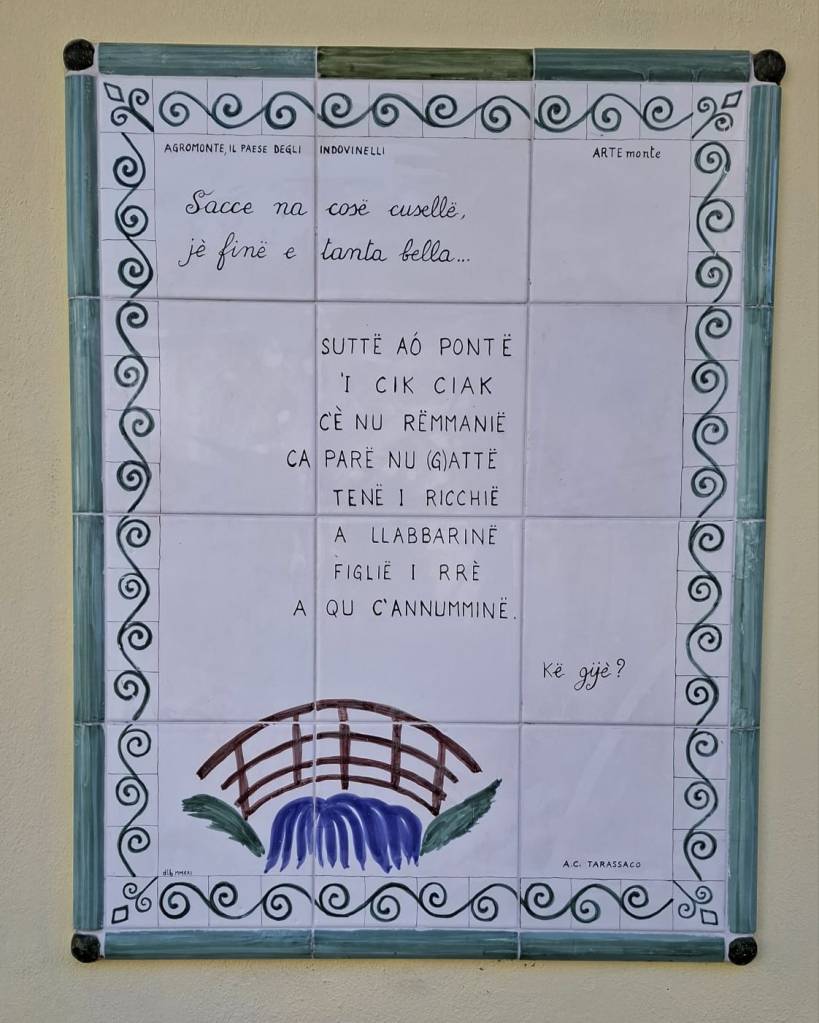 AGROMONTE, IL PAESE DEGLI INDOVINELLI
ARTEmonte
Sacce na cosë cusellë,
jè finë e tanta bella...
SUTTË AÓ PONTË
'I CIK CIAK
C'È NU RËMMANIË
CA PARË NU (G)ATTË
TENË I RICCHIË
A LLABBARINË
FIGLIË I RRÈ
A QU C'ANNUMMINË.
Kë gijè?
A.C. TARASSACO